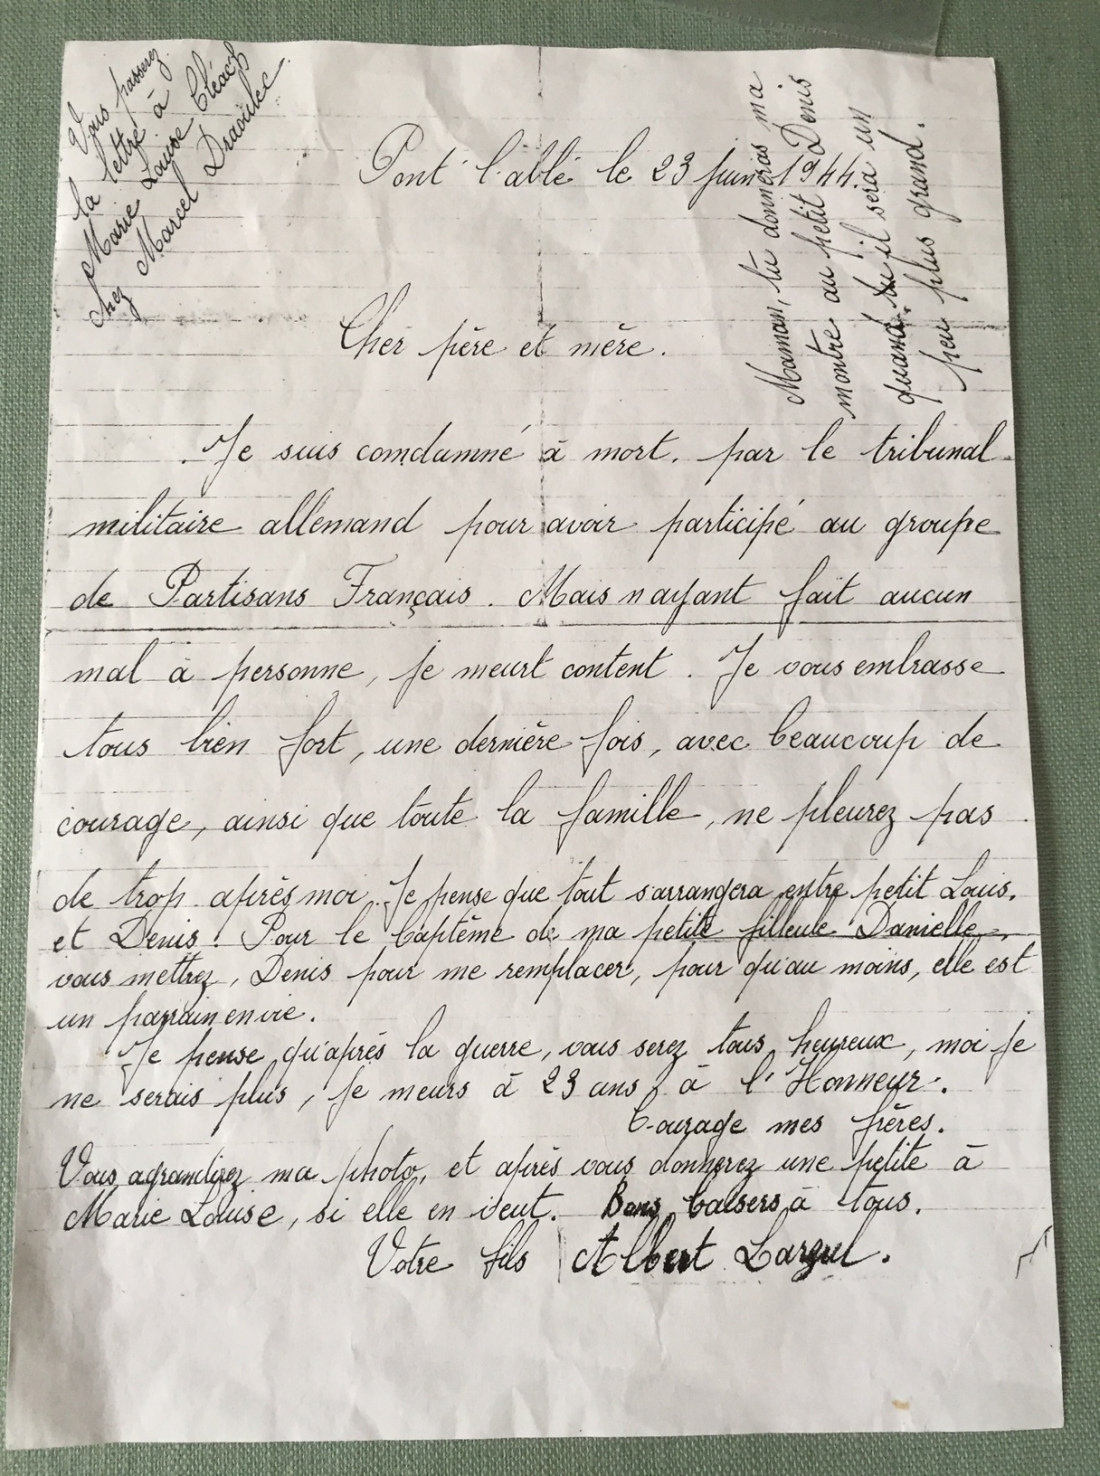 Vous passerez
la lettre à
Marie Louise Cléach
chez Marcel Draoulec.
Pont l'abbé le 23 juin 1944.
Maman, tu donneras ma
montre au petit Denis
quand il sera un
peu plus grand.
Cher père et mère.
Je suis comdamné à mort. par le tribunal
militaire allemand pour avoir participé au groupe
de Partisans Français. Mais n'ayant fait aucun
mal à personne, je meurt content. Je vous embrasse
tous bien fort, une dernière fois, avec beaucoup de
courage, ainsi que toute la famille, ne pleurez pas
de trop après moi. Je pense que tout s'arrangera entre petit Louis.
et Denis. Pour le baptême de ma petite filleule Danielle,
vous mettrez, Denis pour me remplacer, pour qu'au moins, elle est
un parrain en vie.
Je pense qu'après la guerre, vous serez tous heureux, moi je
ne serais plus, je meurs à 23 ans, à l'Honneur.
Courage mes frères.
Vous agrandirez ma photo, et après vous donnerez une petite à
Marie Louise, si elle en veut. Bons baisers à tous.
Votre fils Albert Larzul.